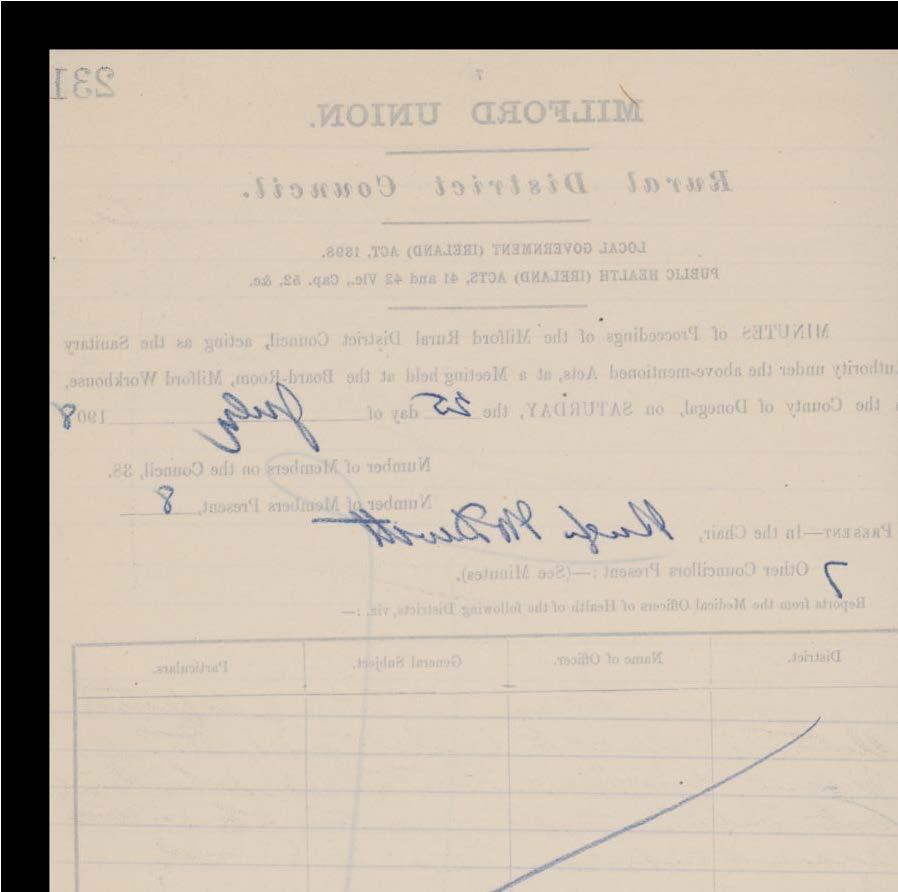 7
231
MILFORD UNION.
Rural District Council.
LOCAL GOVERNMENT (IRELAND) ACT, 1898.
PUBLIC HEALTH (IRELAND) ACTS, 41 and 42 Vic., Cap. 52, &c.
MINUTES of Proceedings of the Milford Rural District Council, acting as the Sanitary
Authority under the above-mentioned Acts, at a Meeting held at the Board-Room, Milford Workhouse,
the County of Donegal, on SATURDAY, the 25 day of July 1908
Number of Members on the Council, 38.
Number of Members Present, 8
PRESENT—In the Chair, Hugh McDevitt
7 Other Councillors Present :—(See Minutes).
Reports from the Medical Officers of Health of the following Districts, viz. :—
District. Name of Officer. General Subject. Particulars.